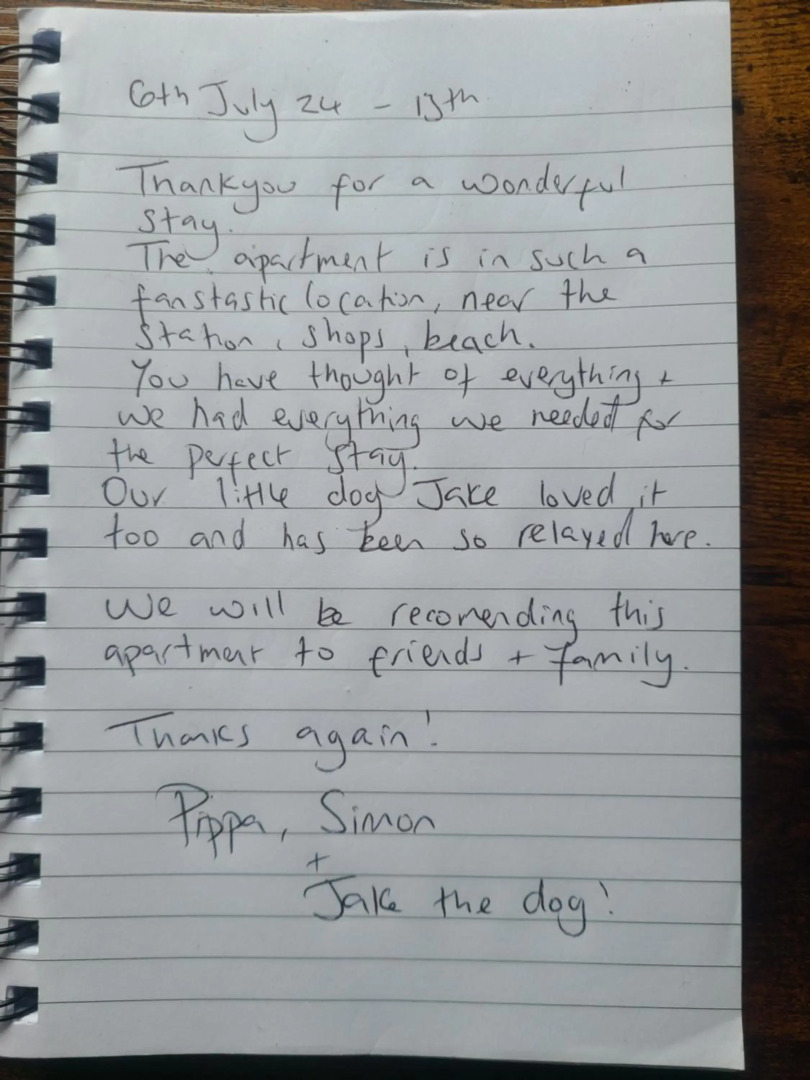 6th July 24 - 13th
Thankyou for a wonderful
stay.
The apartment is in such a
fanstastic location, near the
station, shops, beach.
You have thought of everything +
we had everything we needed for
the perfect stay.
Our little dog Jake loved it
too and has been so relaxed here.
We will be recomending this
apartment to friends + family.
Thanks again!
Pippa, Simon
+
Jake the dog!